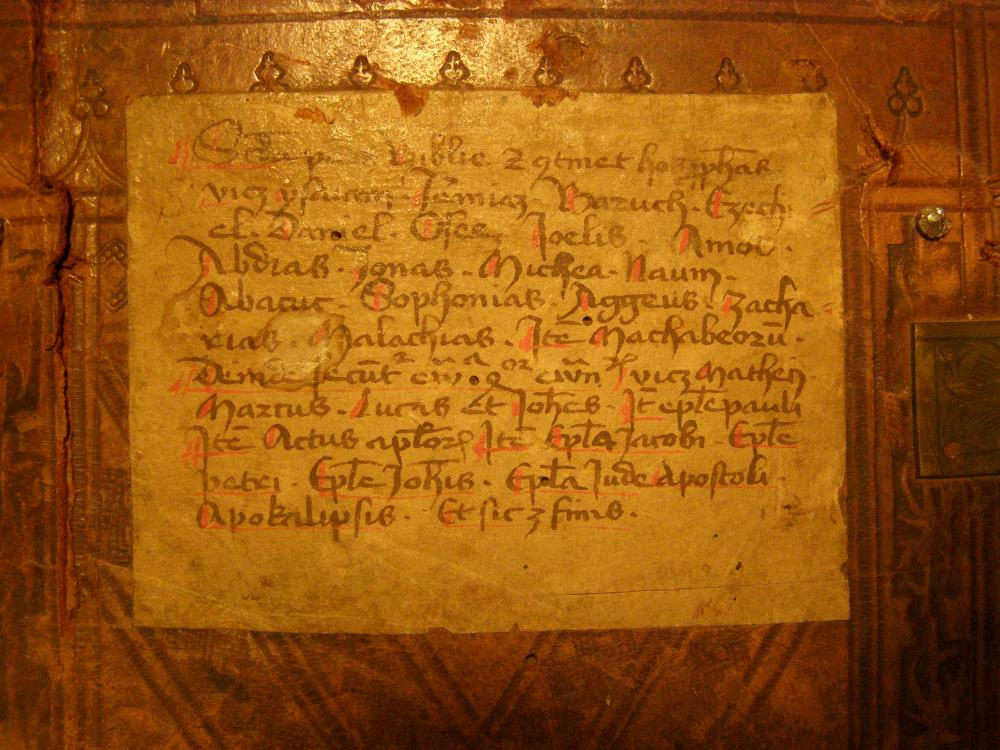 Biblie z 9tinet hos ꝓphas
vicz Jeremiaz · Baruch · Ezech
el · Daniel · Osee Joelis · Amos ·
Abdias · Jonas · Michea · Naum ·
Abacuc · Sophonias · Aggeus · Zacha
rias · Malachias · Itē Machabeorū ·
Deinde secūt vicz Mathei
Marcus · Lucas et Joh̄es · Jt̄ ep̄le pauli
Itē Actus ap̄lor̄ Itē Ep̄la Jacobi · Ep̄le
petri · Ep̄le Joh̄is · Ep̄la Jude Apostoli ·
Apokalipsis · Et sic z finis ·